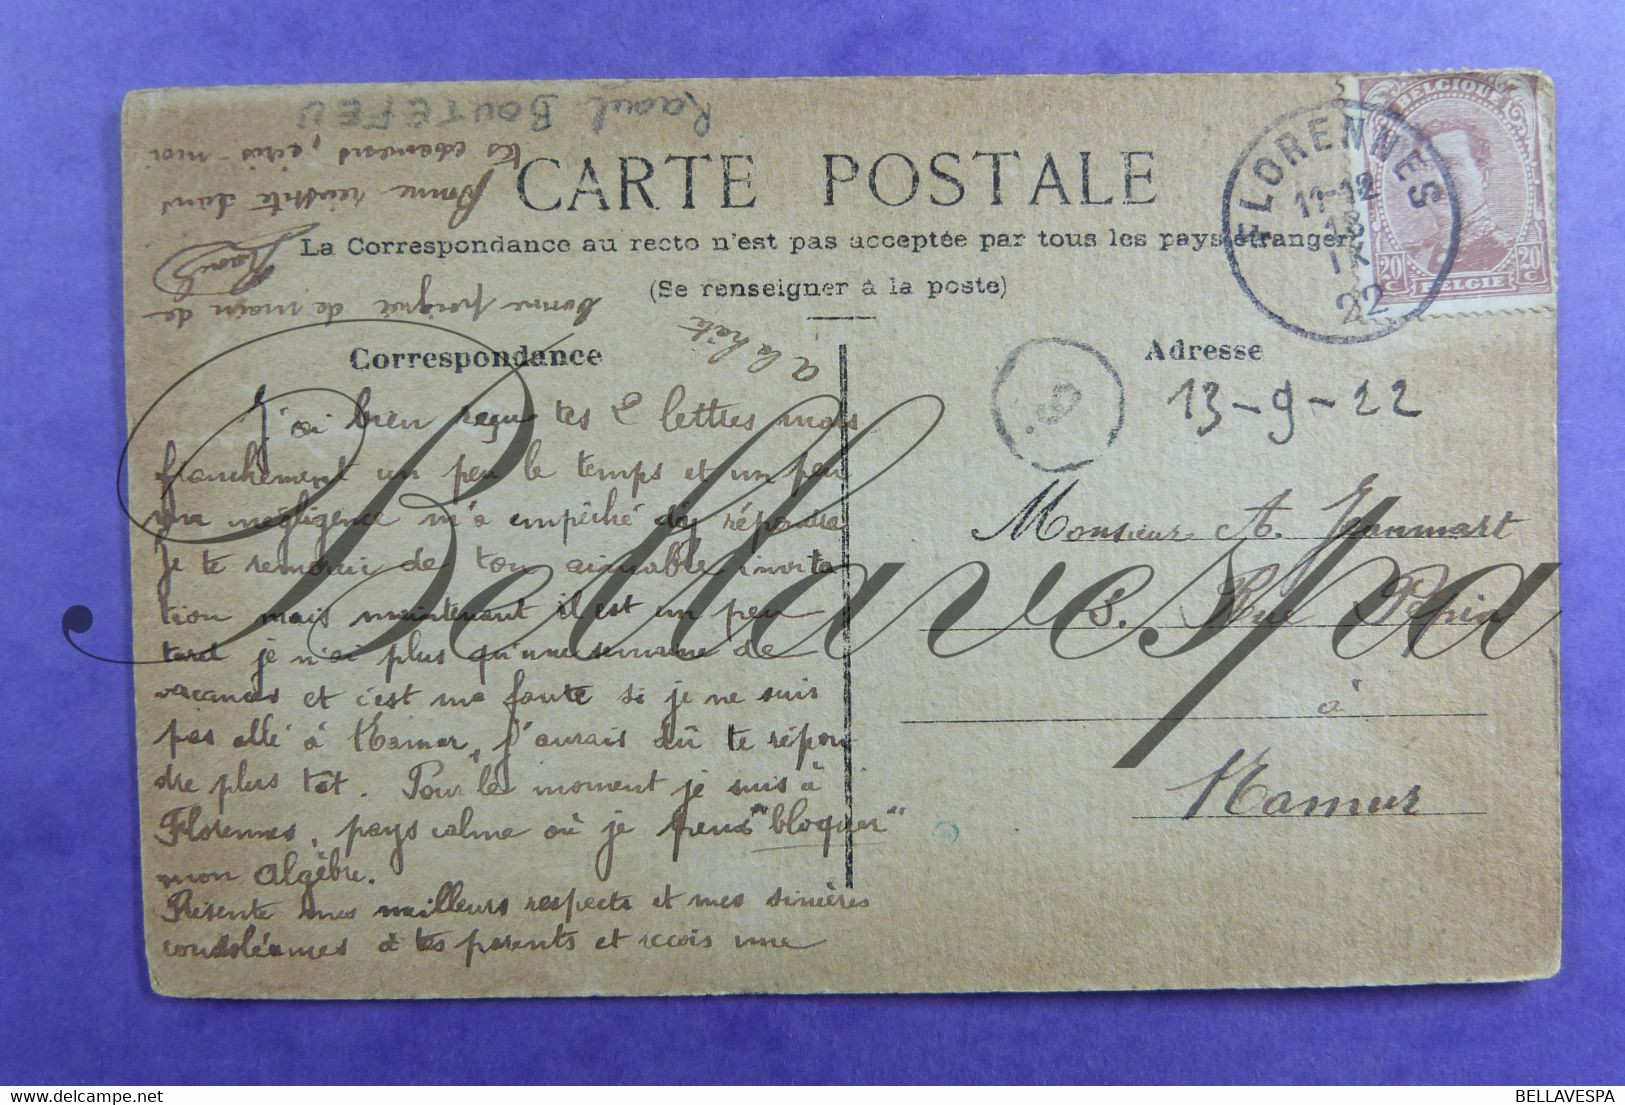 Raoul BOUTEFEU
CARTE POSTALE
La Correspondance au recto n'est pas acceptée par tous les pays étrangers
(Se renseigner à la poste)
Correspondance
Adresse
BELGIQUE
20 c
20 c
BELGIE
FLORENNES
11-12
13
IX
22
13-9-22
Monsieur A. Jeanmart
3. Rue Pépin
à
Namur
a la hâte
J'ai bien reçu tes 2 lettres mais
franchement un peu le temps et un peu
ma négligence m'a empêché d'y répondre
Je te remercie de ton aimable invita
tion mais maintenant il est un peu
tard je n'ai plus qu'une semaine de
vacances et c'est ma faute si je ne suis
pas allé à Namur, j'aurais dû te répon
dre plus tôt. Pour le moment je suis à
Florennes, pays calme où je peux "bloquer"
mon Algèbre.
Présente mes meilleurs respects et mes sincères
condoléances à tes parents et reçois une
bonne poignée de main de
Raoul
Bonne réussite dans
tes examens, écris-moi
Bellavespa
BELLAVESPA